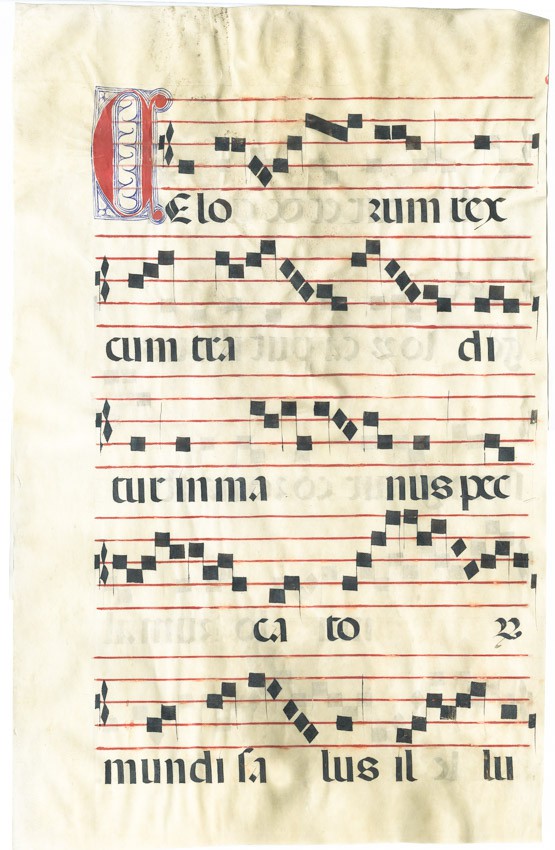 CElo rum rex
cum tra di
tur in ma nus pec
ca to ꝝ
mundi ſa lus il lu